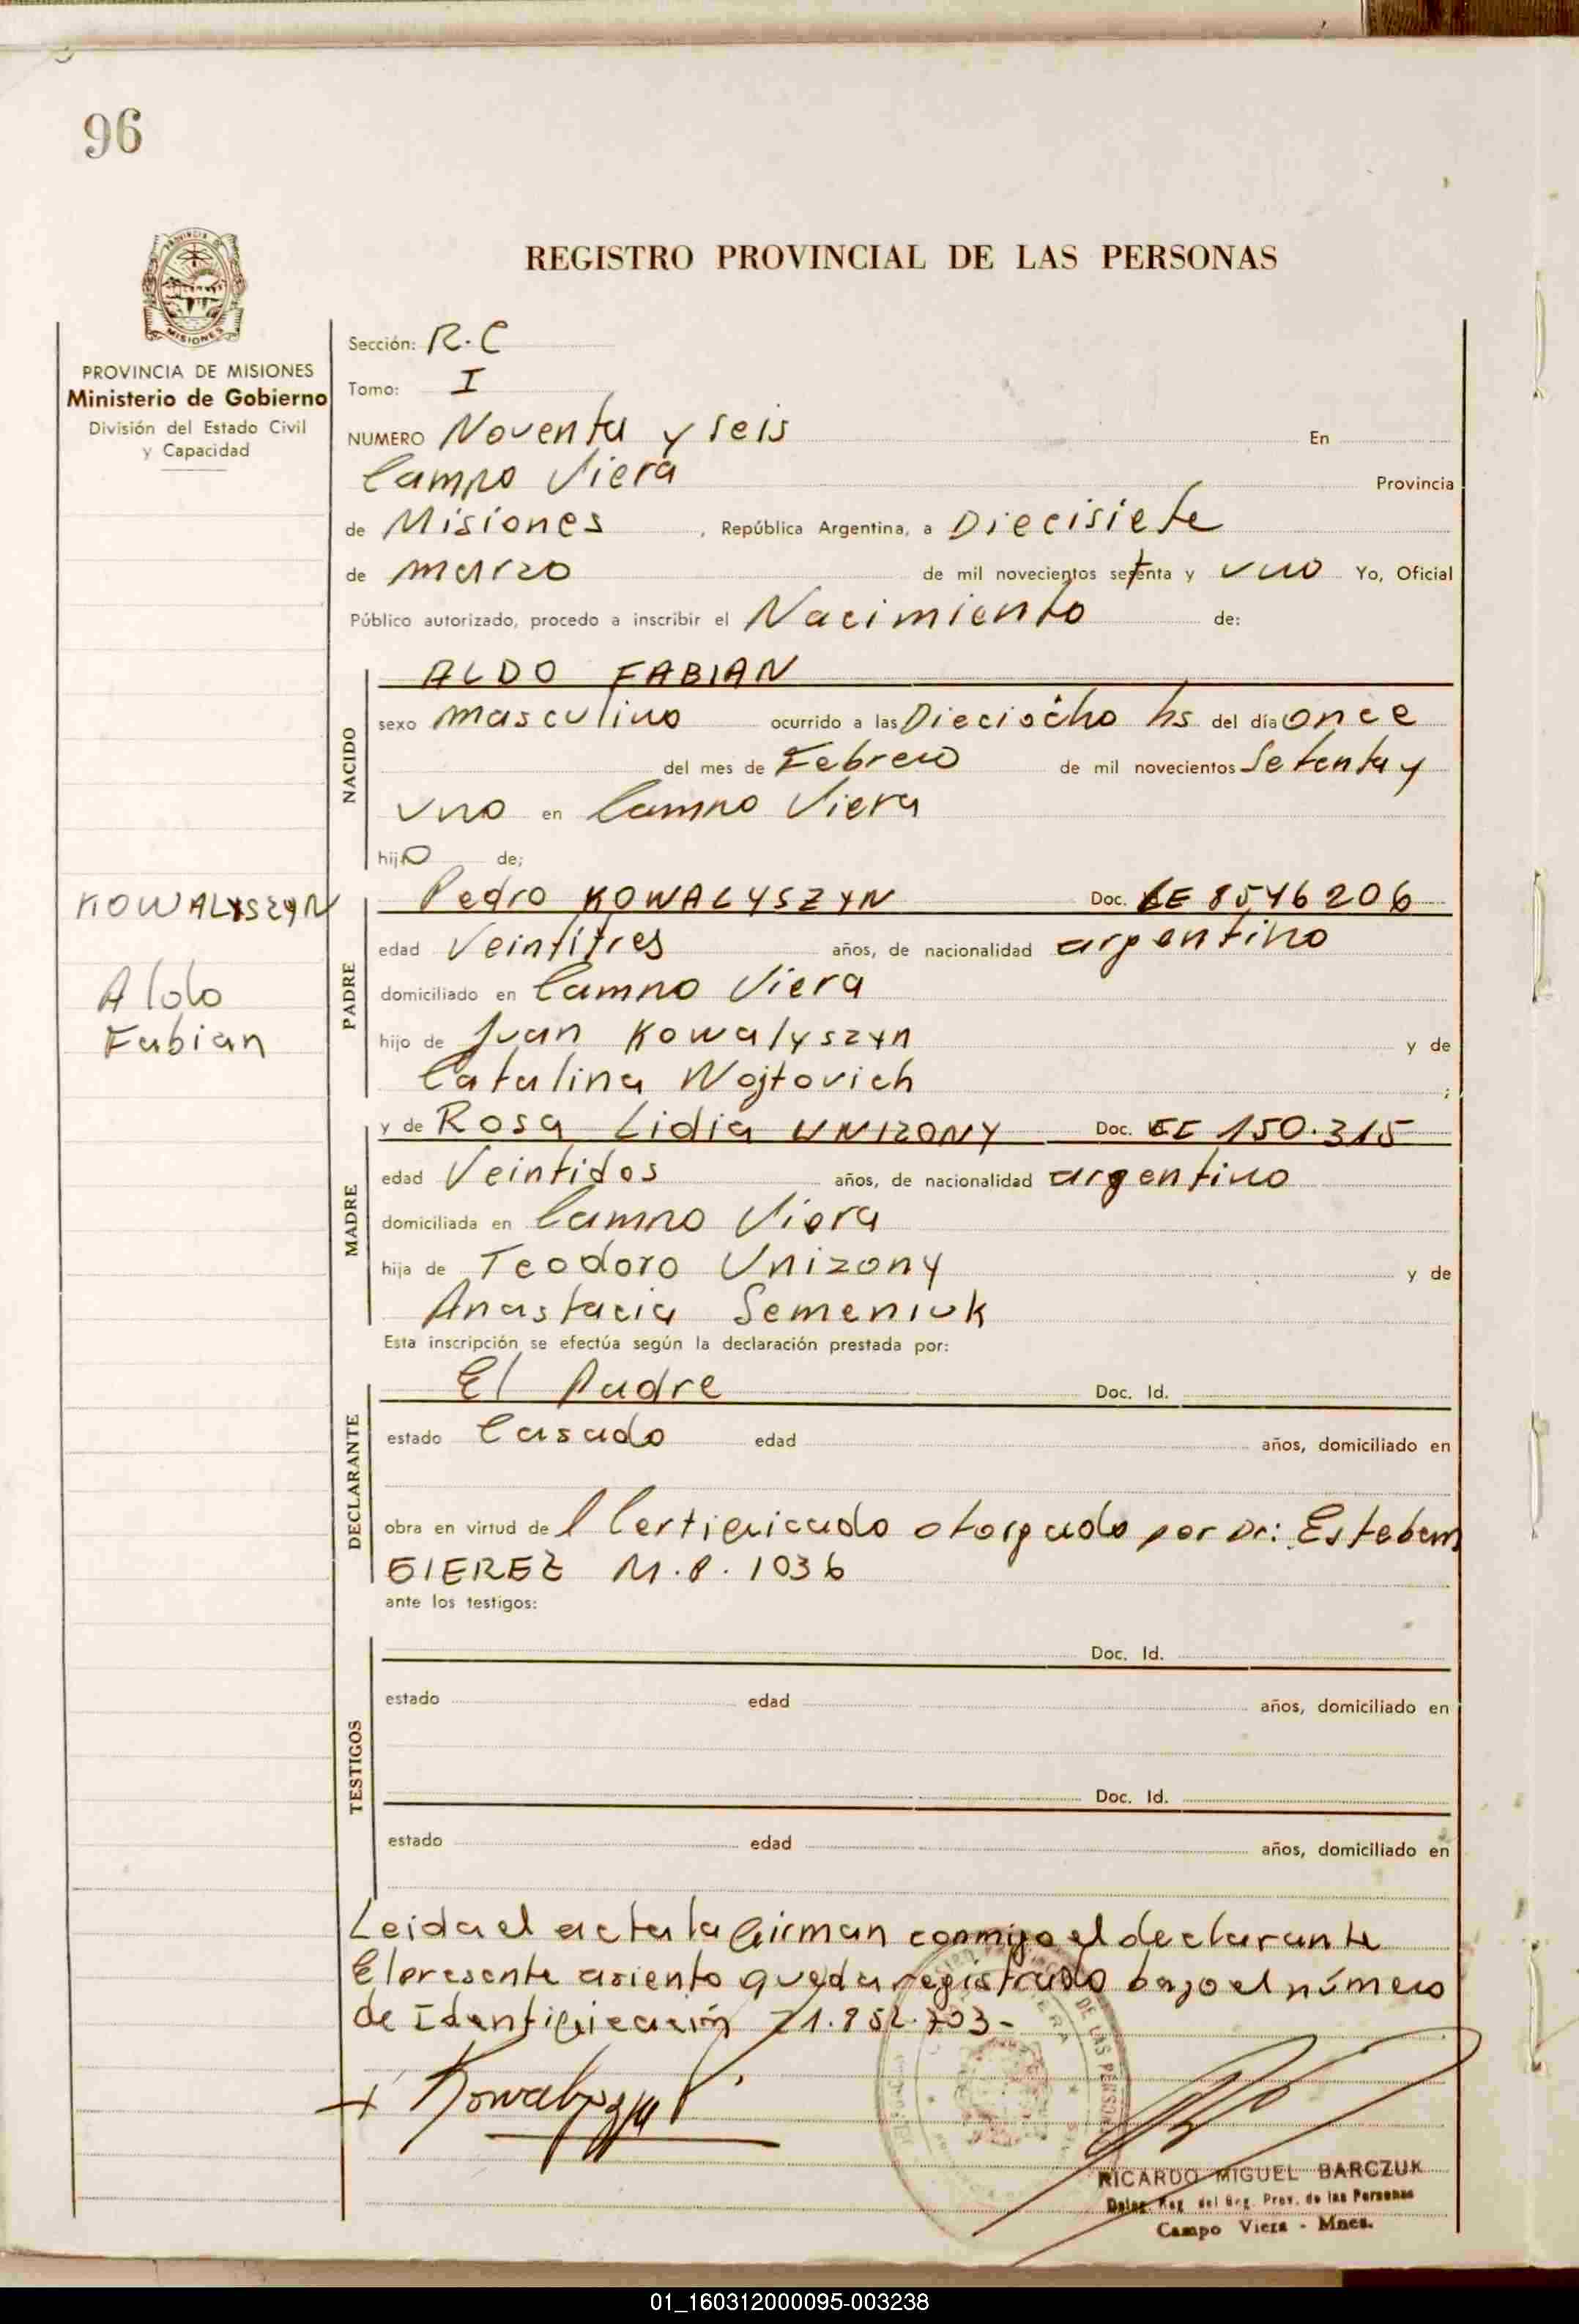 96
REGISTRO PROVINCIAL DE LAS PERSONAS
PROVINCIA DE MISIONES
Ministerio de Gobierno
División del Estado Civil
y Capacidad
Sección: R.C
Tomo: I
NUMERO Noventa y seis En
Campo Viera Provincia
de Misiones , República Argentina, a Diecisiete
de marzo de mil novecientos setenta y uno Yo, Oficial
Público autorizado, procedo a inscribir el Nacimiento de:
NACIDO
ALDO FABIAN
sexo masculino ocurrido a las Dieciocho hs del día once
del mes de Febrero de mil novecientos Setenta y
uno en Campo Viera
hijo de;
KOWALYSZYN
Aldo
Fabian
PADRE
Pedro KOWALYSZYN Doc. 8546206
edad Veintitres años, de nacionalidad argentino
domiciliado en Campo Viera
hijo de Juan Kowalyszyn y de
Catalina Wojtovich ;
MADRE
y de Rosa Lidia UNIZONY Doc. 150.315
edad Veintidos años, de nacionalidad argentino
domiciliada en Campo Viera
hija de Teodoro Unizony y de
Anastacia Semeniuk
Esta inscripción se efectúa según la declaración prestada por:
DECLARANTE
El Padre Doc. Id.
estado Casado edad años, domiciliado en
obra en virtud de l Certificado otorgado por Dr: Esteban
M.P. 1036
ante los testigos:
TESTIGOS
Doc. Id.
estado edad años, domiciliado en
Doc. Id.
estado edad años, domiciliado en
Leida el acta la firman conmigo el declarante
El presente asiento queda registrado bajo el número
de Identificación
RICARDO MIGUEL BARCZUK
Deleg. Reg. del Reg. Prov. de las Personas
Campo Viera - Mnes.
01_160312000095-003238